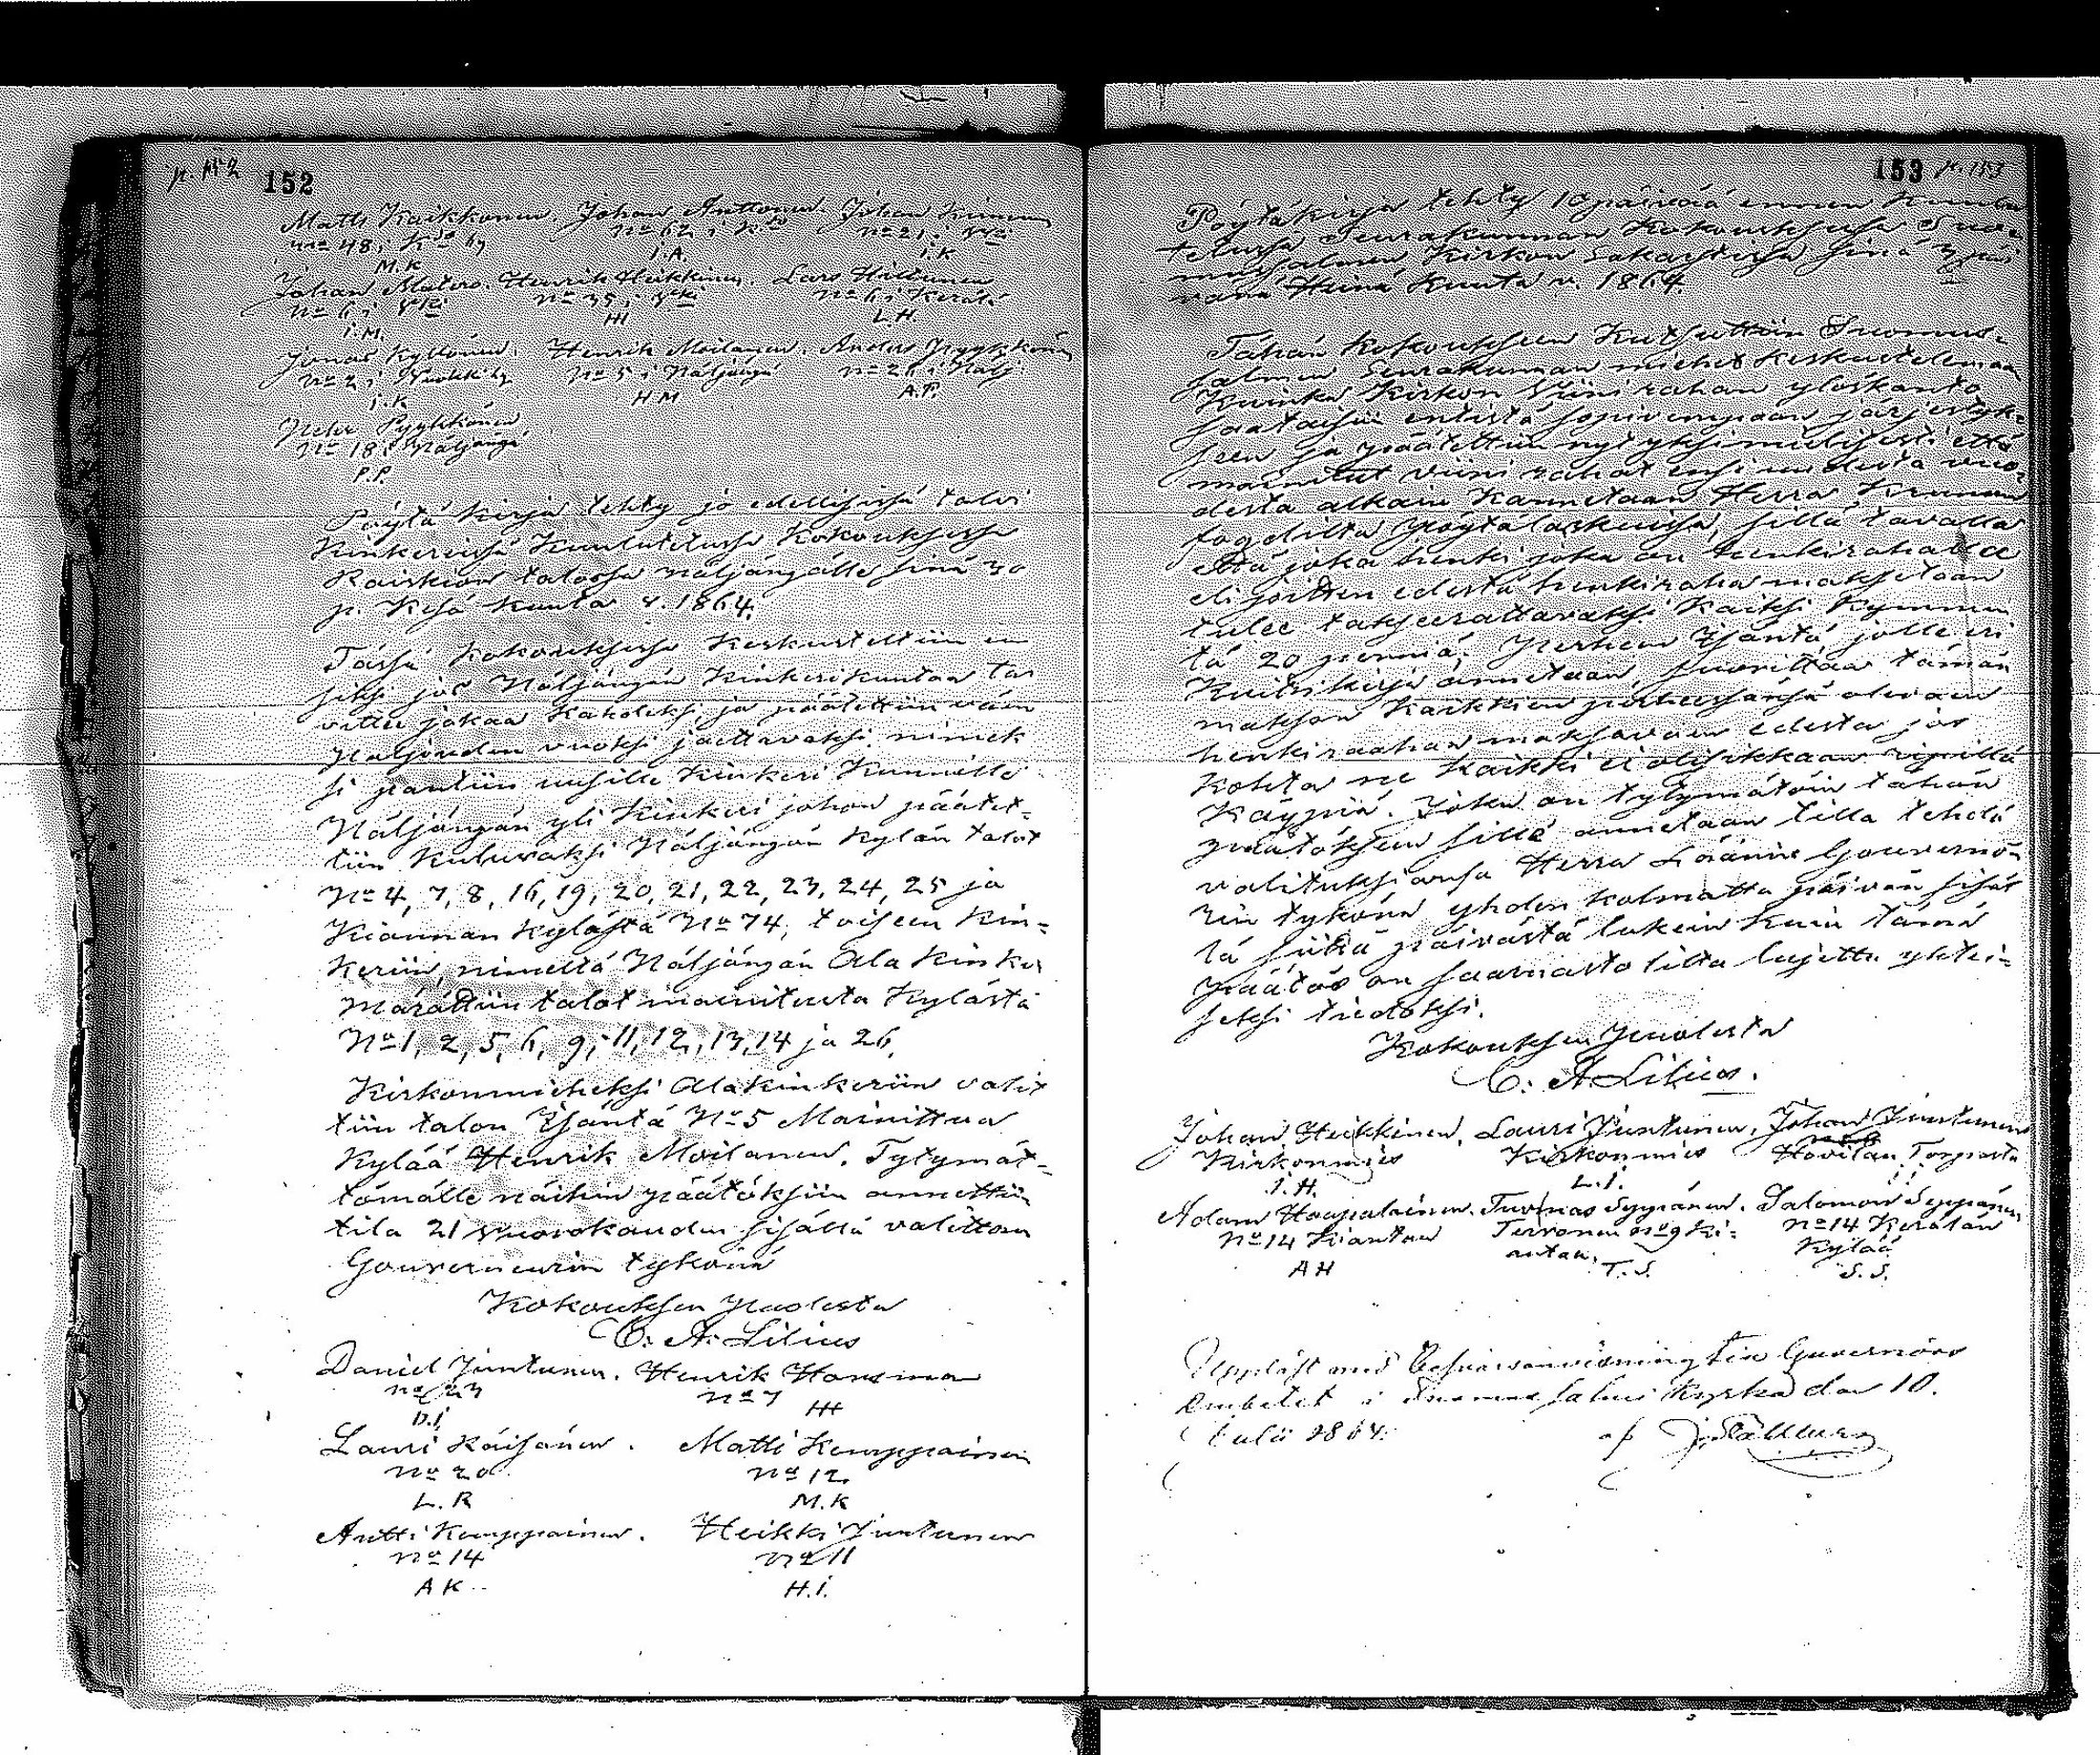 152
Matts Kaikkonen. Johan Anttonen. Johan Kinunen
No 48 i K:o by No 62 i K:o No 21 i
M.K. i.A. i.K
Johan Matero. Henrik Heikkinen. Lars Hiltunen
No 6 i No 35 i No 6 i Kerälä
i.M. HH L.H.
Jonas Kyllönen. Henrik Moilanen. Anders Pyykkönen
No 2 i No 5 i Näljängä No 26 i Nälj.
i.K HM A.P.
Peter Pyykkönen
No 18 i Näljängä
P.P.
Pöytä kirja tehty jo edellisissä talvi
Kinkereissä Kuulutetussa Kokouksessa
Raiskion talossa Näljängälle sinä 30
p. Kesä kuuta v. 1864.
Tässä Kokouksessa Keskusteltiin en
siksi jos Näljängän Kinkerikuntaa tar
vittee jakaa Kahdeksi, ja päätettiin väen
Paljouden vuoksi jaettavaksi. nimek
si pantiin uusille Kinkeri Kunnille
Näljängän yli Kinkeri johon päätet-
tiin Kuluvaksi Näljängän Kylän talot
No 4, 7, 8, 16, 19, 20, 21, 22, 23, 24, 25 ja
Kiannan Kylästä No 74, toiseen Kin-
keriin, nimeltä Näljängän Ala Kinkeri
Märättiin talot mainitusta Kylästä
No 1, 2, 5, 6, 9, 11, 12, 13, 14 ja 26.
Kirkonmieheksi Alakinkeriin valit
tiin talon Isäntä No 5 Mainittua
Kylää Henrik Moilanen. Tytymät-
tömälle näihin päätöksiin annettiin
tila 21 Vuorokauden sisällä valittaa
Gouverneurin tykönä
Kokouksen Puolesta
C. A. Lilius
Daniel Juntunen. Henrik Hansman
No 23 No 7
D.i. HH
Lauri Räisänen. Matti Kemppainen
No 20 No 12
L.R M.K
Antti Kemppainen. Heikki Juntunen
No 14 No 11
A K H.i.
153 p. 153
Pöytäkirja tehty 10 päivää ennen Kuulu
tetussa Seurakunnan Kokouksessa Suo-
mussalmen Kirkon Sakastissa sinä 3 päi
vänä Heinä Kuuta v. 1864.
Tähän Kokoukseen Kutsuttiin Suomus-
salmen Seurakunnan miehet Keskustelemaan
Kuinka Kirkon Viini rahan ylöskanto
saataisiin entistä sopivempaan järjestyk-
seen ja päätettiin nyt yksimielisesti että
mainitut viini rahat ensi uudesta vuo-
desta alkain Kannetaan Herra Kruunun
fogdilta Pöytäläskuissa, sillä tavalla
että joka henki joka on henkirahalla
eli joitten edestä henkiraha maksetaan
tulee takseerattavaksi Kaiksi Kymmen
tä 20 penniä; Perheen Isäntä jolle eri
Kuittikirja annetaan, suorittaa tämän
makson Kaikkien perheessänsä olevain
henkiraahan maksavain edestä jos
Kohta ne Kaikki ei olisikkaan ripillä
Käypiä. Joka on tytymätöin tähän
päätöksen sille annetaan tilla tehdä
valituksiansa Herra Läänin Gouvernö-
rin tykönä yhden kolmatta päivän sisäl
lä siitä päivästä lukein kuin tämä
päätös on saarnasto lilta lujettu yhtei-
seksi tiedoksi.
Kokouksen Puolesta
C. A Lilius.
Johan Heikkinen, Lauri Juntunen, Johan Juntunen
Kirkonmies Kirkonmies Hovilan Torpasta
J.H. L.J. i i
Adam Haapalainen. Tuomas Seppänen. Salomon Seppänen
No 14 Kiantaa Tervonen No 9 Ki- No 14 Kerälän
antaa. Kylää
AH T.S. S.S.
Uppläst med besvärsanvisning till Guvernörs
Embetet i Suomussalmi Kyrka den 10.
Julii 1864. af